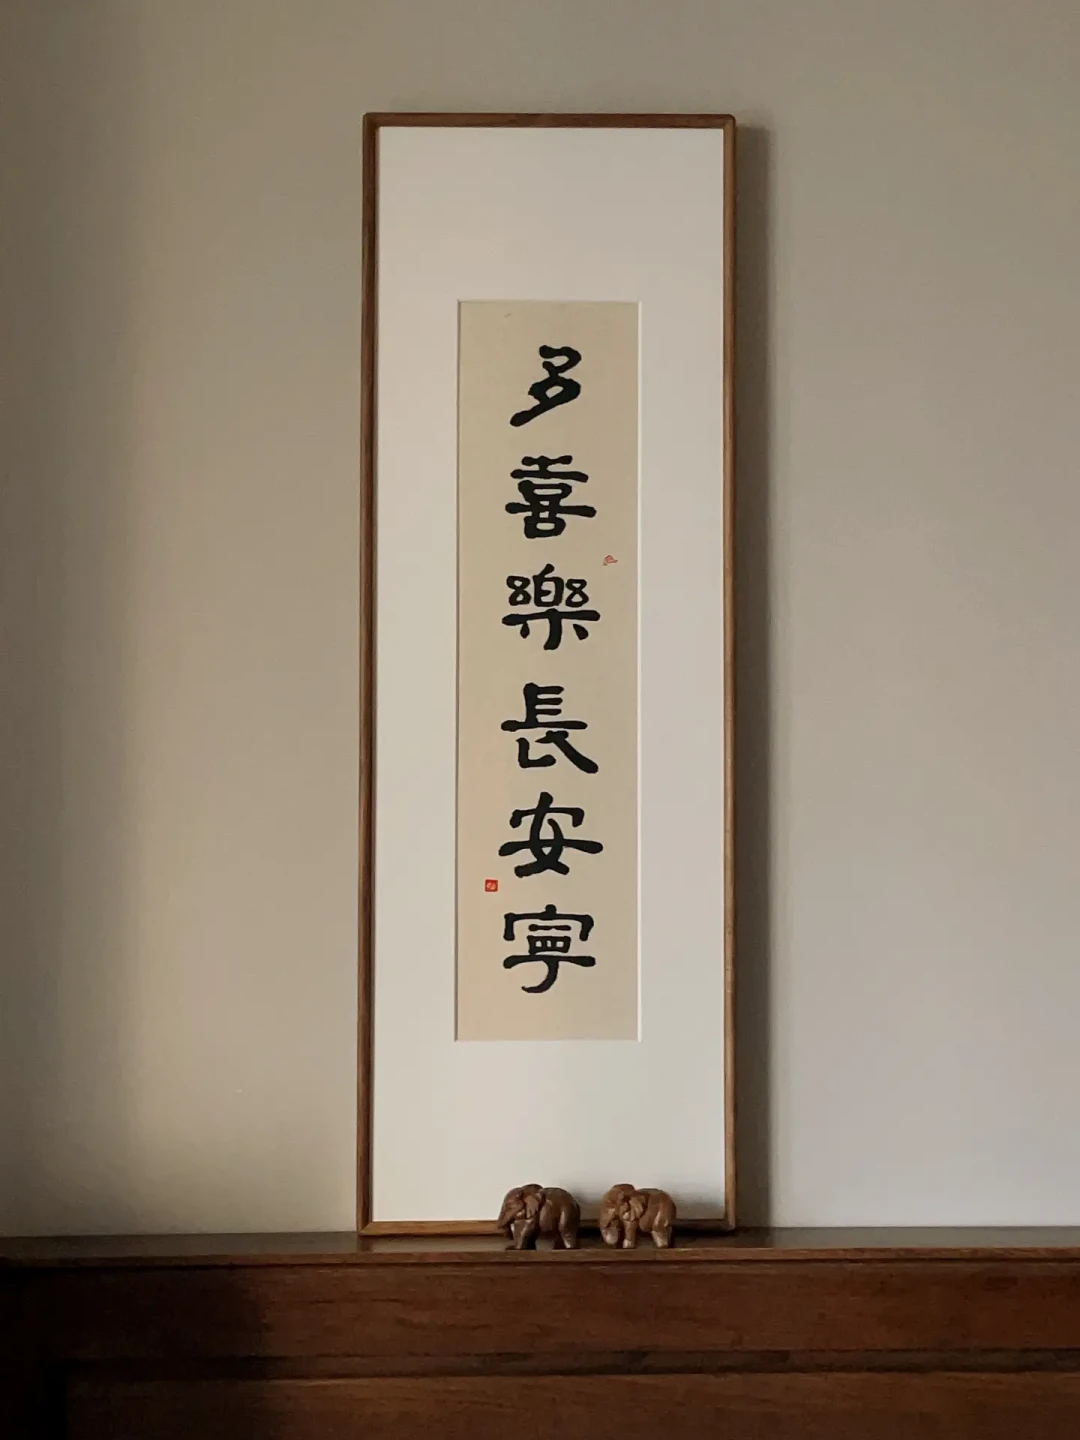 多喜樂長安寧